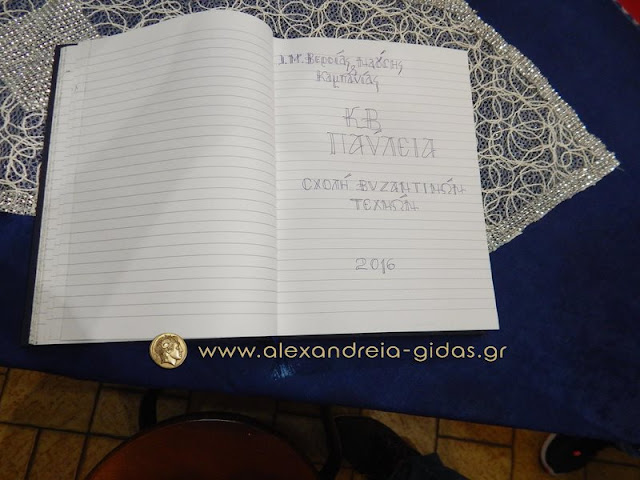 Ι.Μ. Βεροίας, Ναούσης
& Καμπανίας
ΚΒ΄
ΠΑΥΛΕΙΑ
ΣΧΟΛΗ ΒΥΖΑΝΤΙΝΩΝ
ΤΕΧΝΩΝ
2016
www.alexandreia-gidas.gr